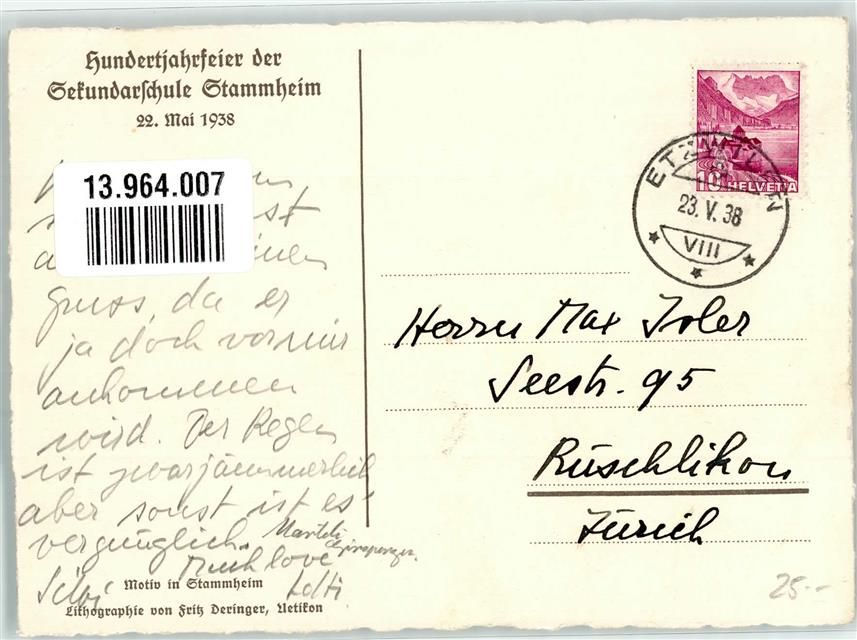 Hundertjahrfeier der
Sekundarschule Stammheim
22. Mai 1938
13.964.007
gruss, da er
ja doch vor mir
ankommen
wird. Der Regen
ist zwar jämmerlich
aber sonst ist es
vergnüglich.
Much love
Motiv in Stammheim
Lithographie von Fritz Deringer, Uetikon
10 HELVETIA
ETZWILEN
23. V. 38
VIII
Herrn Max Isler
Seestr. 95
Rüschlikon
Zürich
25.--